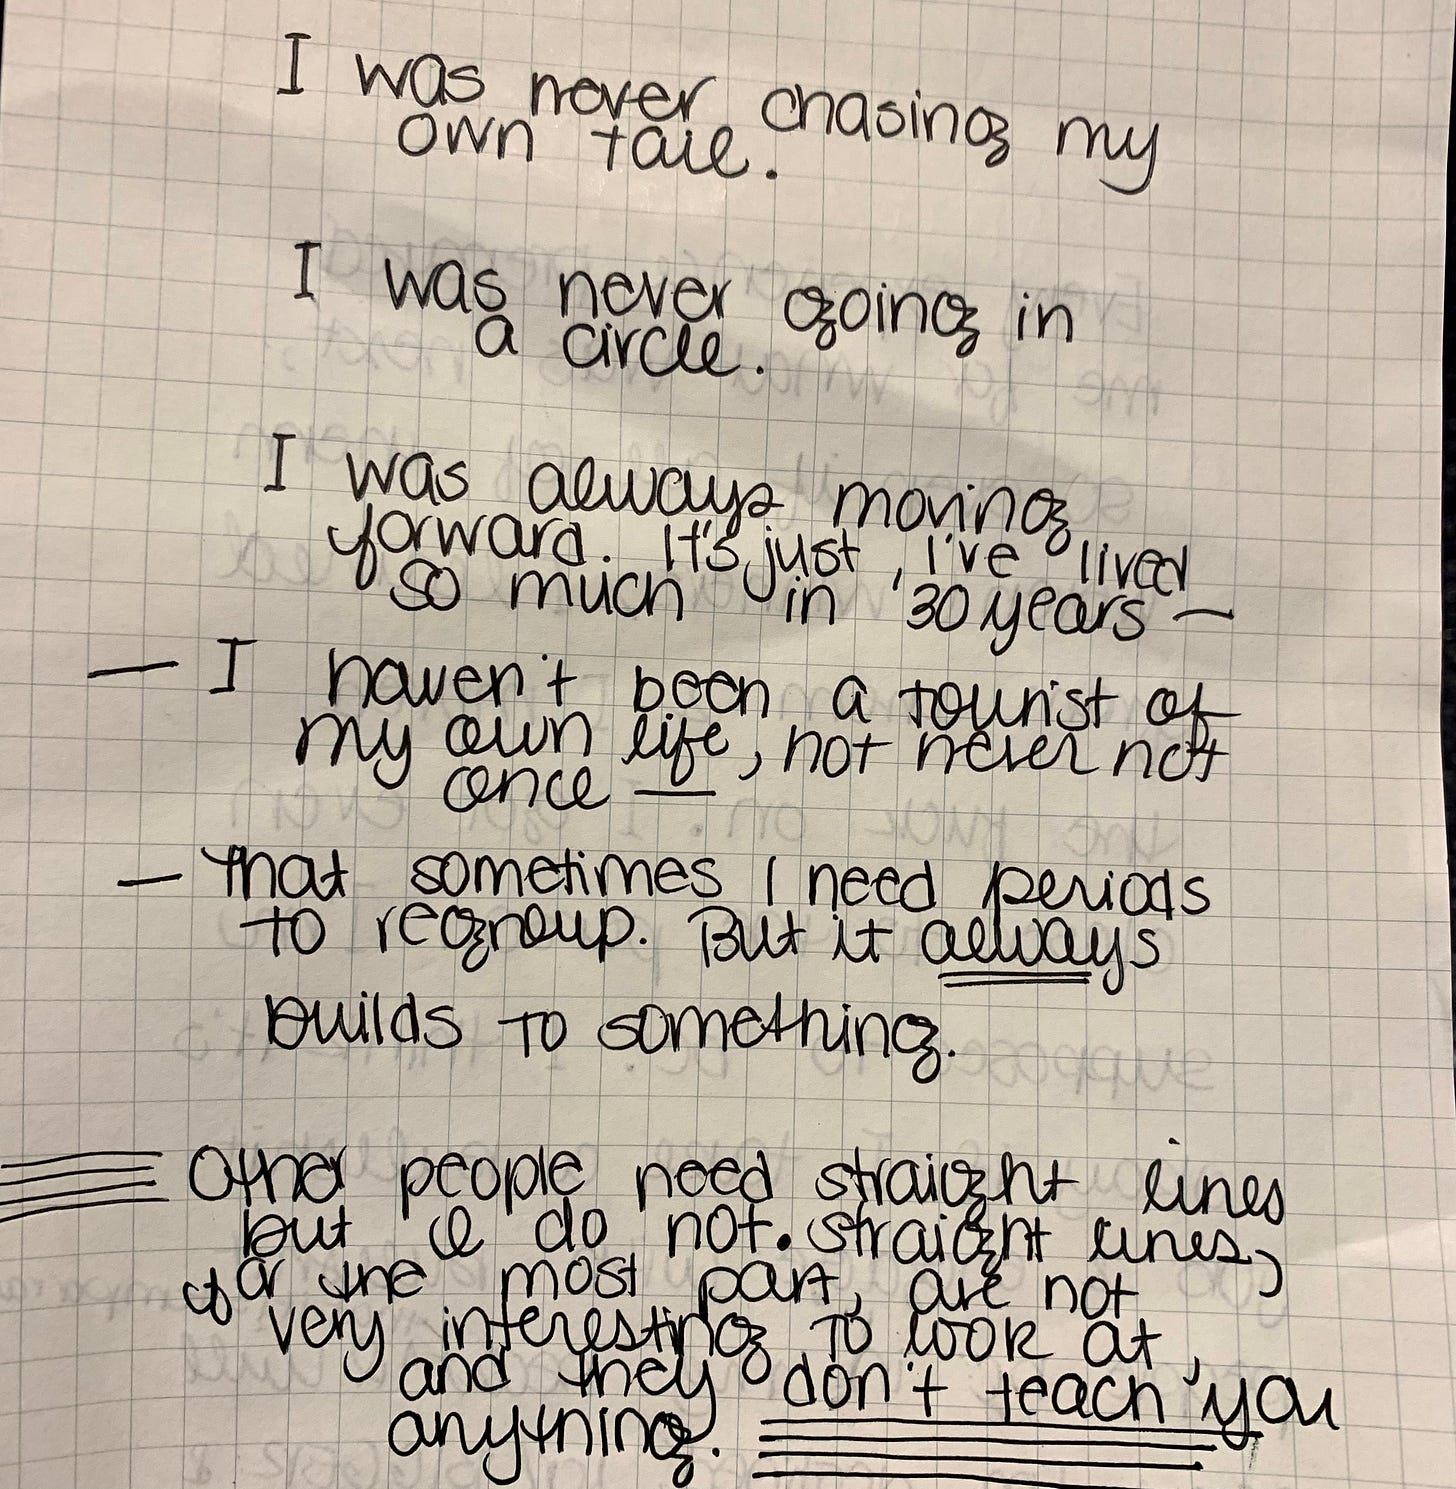 I was never chasing my
own tale.
I was never going in
a circle.
I was always moving
forward. It's just, I've lived
so much in 30 years —
— I haven't been a tourist of
my own life, not never not
once —
— that sometimes I need periods
to regroup. But it always
builds to something.
Other people need straight lines
but I do not. straight lines,
for the most part, are not
very interesting to look at,
and they don't teach you
anything.